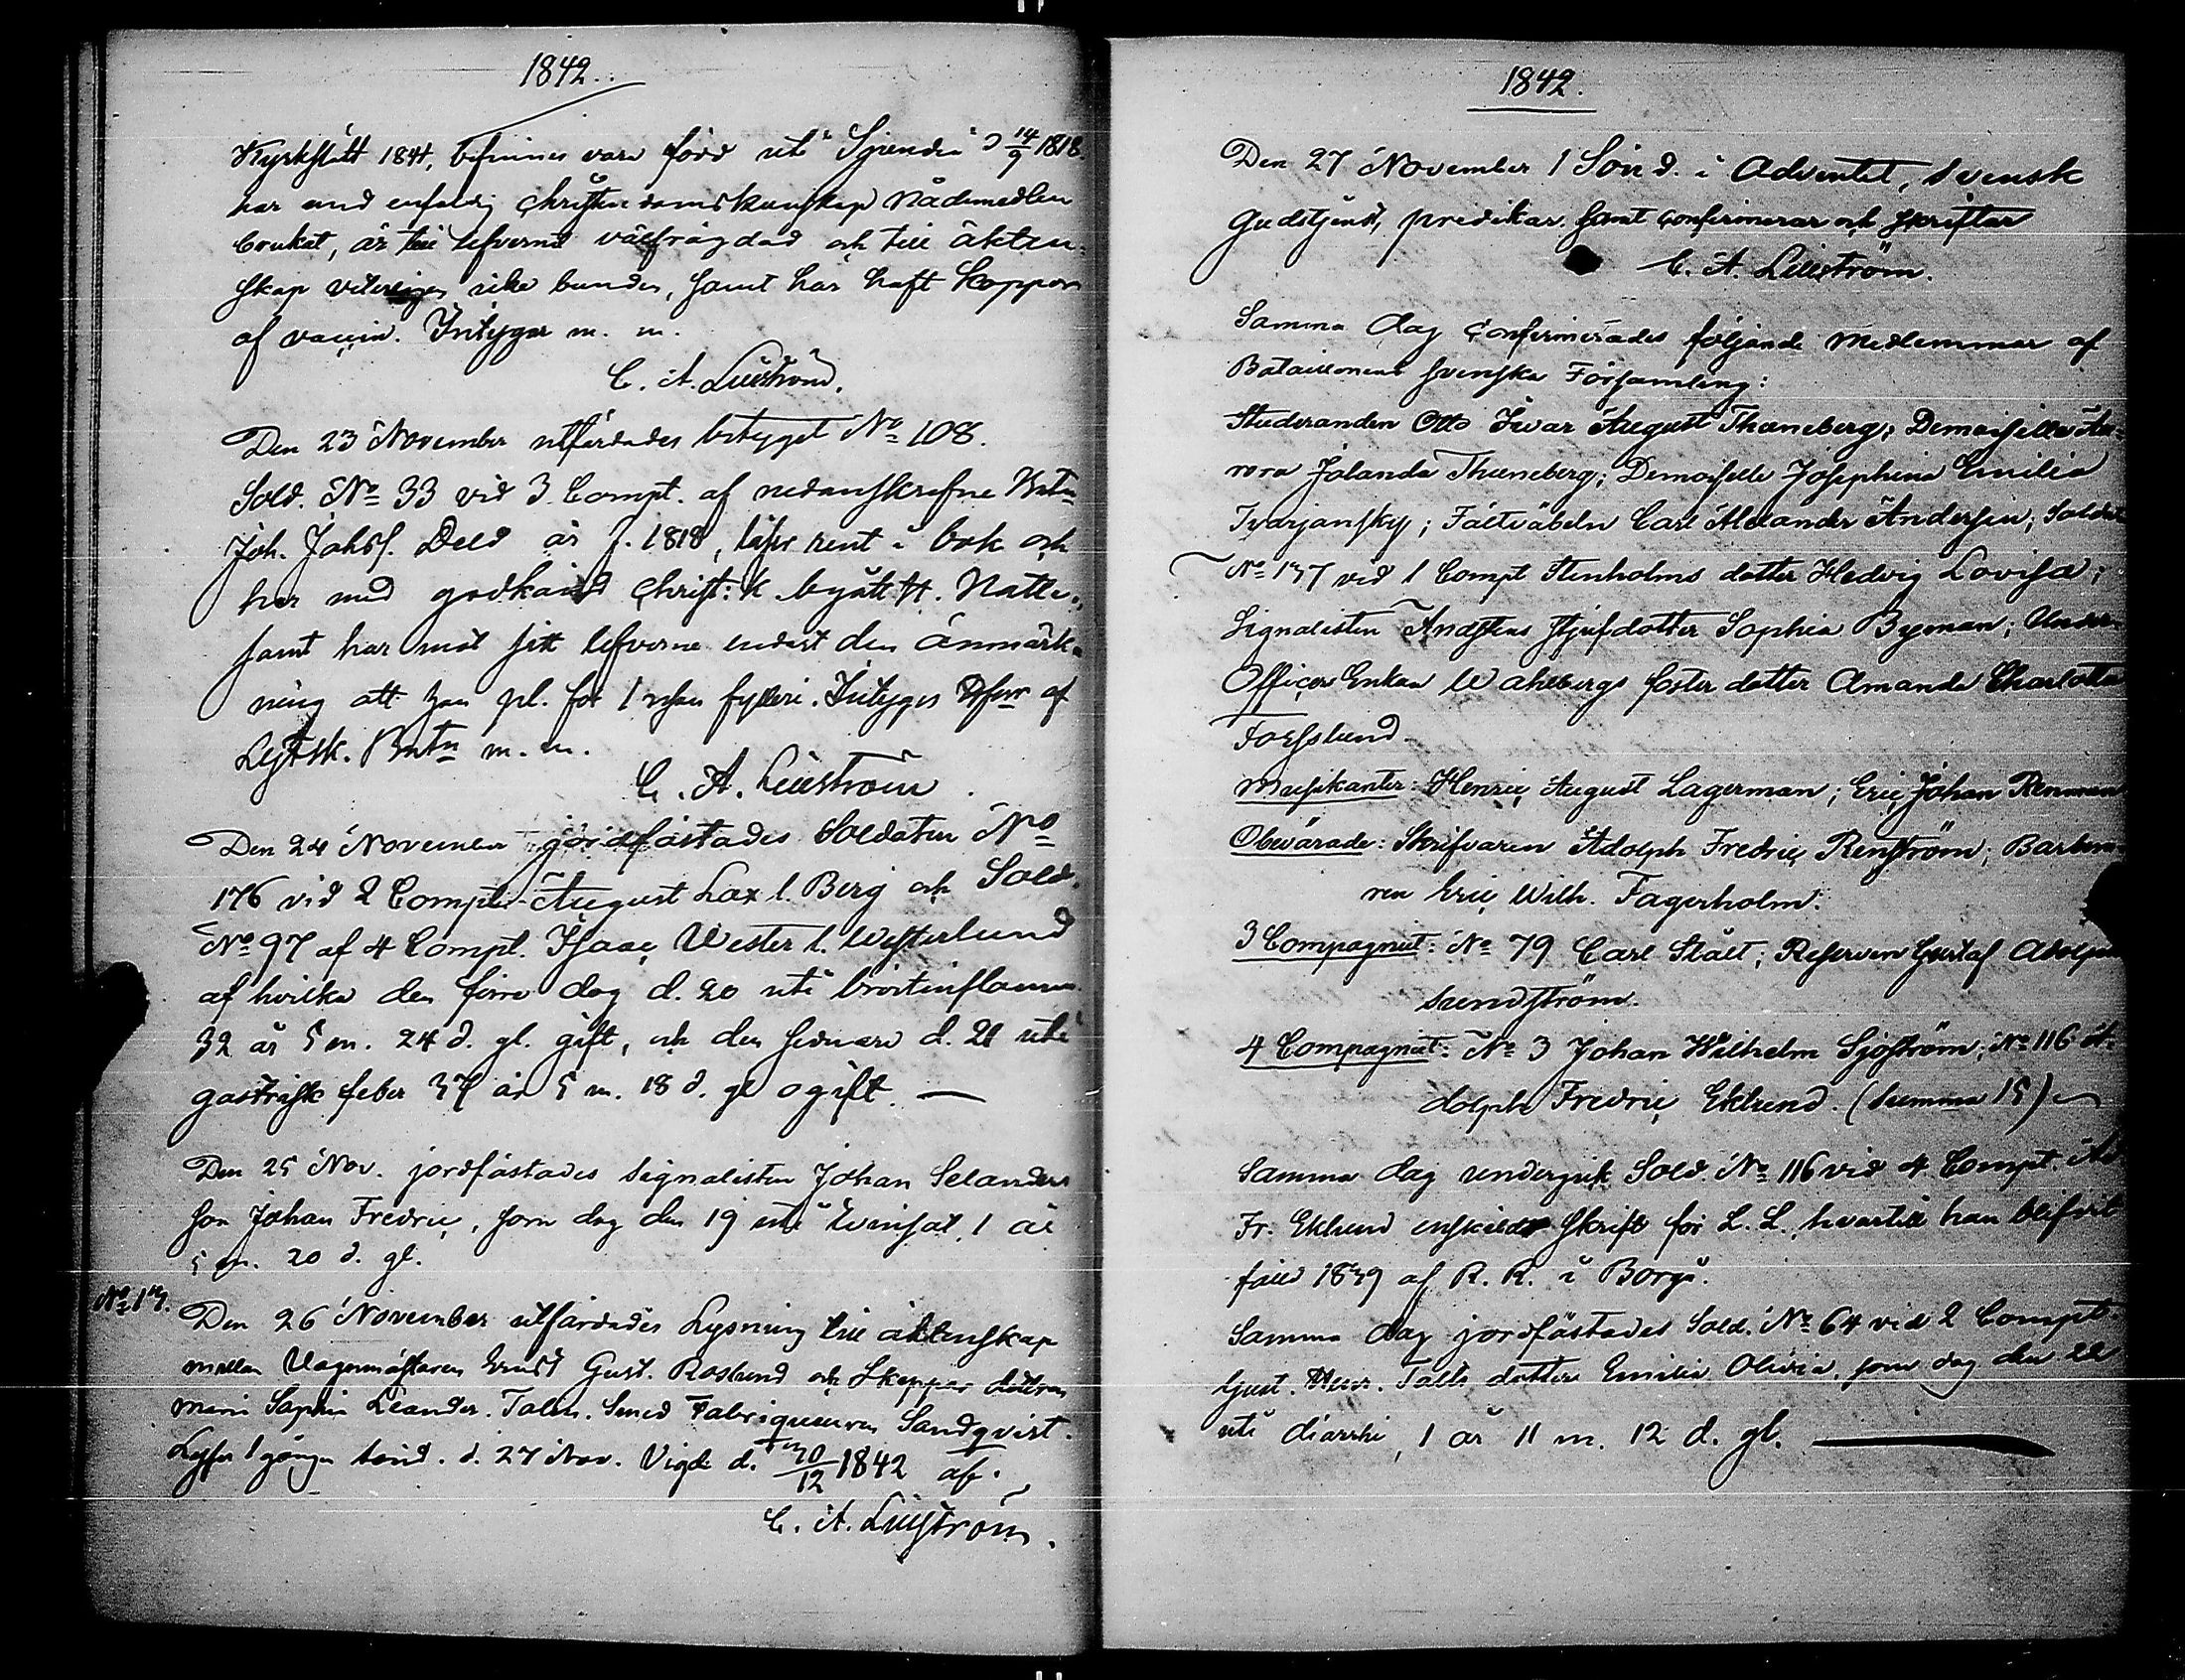 1842.
Kyrkslätt 1841, befinnes vara född uti Sjundeå d 14/9 1818.
har med enfaldig christendomskunskap nådemedlen
brukat, är till lefvernet välfrägdad och till äkten-
skap veterligen icke bunden, samt har haft koppor
af vaccin. Intygar m. m.
C. A. Lilliström.
Den 23 November utfärdades betyget No 108.
Sold. No 33 vid 3 Compt. af nedanskrefne Batn
Joh. Johsf. Deld är f. 1818, läser rent i bok och
har med godkänd Christ: k. begått H. Nattv.,
samt har mot sitt lefverne endast den anmärk-
ning att han pl. för 1 resan fylleri. Intygas af
Lejfsk. Batn m. m.
C. A. Lilliström
Den 24 November jordfästades Soldaten No
176 vid 2 Compt. August Lax l. Berg och Sold.
No 97 af 4 Compt. Isaac Wester l. Westerlund
af hvilka den förre dog d. 20 uti bröstinflamm.
32 år 5 m. 24 d. gl. gift, och den sednare d. 21 uti
gastrisk feber 37 år 5 m. 18 d. gl ogift. —
Den 25 Nov. jordfästades Signalisten Johan Selanders
son Johan Fredric, som dog den 19 uti tvinsot, 1 år
5 m. 20 d. gl.
No 13.
Den 26 November utfärdades Lysning till äktenskap
mellan Vagenmästaren Ernst Gust. Roslund och Skeppar dottren
Maria Sophia Leander. Talm. Smed Fabriqueuren Sandqvist.
Lyses 1 gången Sönd. d. 27 Nov. Vigde d. 30/12 1842 af.
C. A. Lilliström.
1842.
Den 27 November 1 Sönd. i Adventet, svensk
Gudstjenst, predikar samt confirmerar och skriftar
C. A. Lilliström.
Samma dag confirmerades följande Medlemmar af
Bataillonens svenska Församling:
Studeranden Otto Ivar August Thuneberg; Demoiselle Au-
rora Jolanda Thuneberg; Demoiselle Josephina Emilia
Ivarjansky; Fältväbeln Carl Alexander Andersin; Soldat
No 137 vid 1 Compt Stenholms dotter Hedvig Lovisa;
Signalisten Andstens stjufdotter Sophia Byman; Under-
Officers Enkan Wahlbergs foster dotter Amanda Charlotta
Forsslund.
Musikanter: Henric August Lagerman; Eric Johan Renman
Obevärade: Skrifvaren Adolph Fredric Renström; Barbera-
ren Eric Wilh. Fagerholm.
3 Compagniet: No 79 Carl Stålt; Reserven Gustaf Adolph
Sundström.
4 Compagniet: No 3 Johan Wilhelm Sjöström; No 116 A-
dolph Fredric Eklund. (Summa 15)
Samma dag undergick Sold. No 116 vid 4 Compt. Ad
Fr. Eklund enskildt skrift för L. L. hvartill han blifvit
fälld 1839 af R. R. i Borgå.
Samma dag jordfästades Sold. No 64 vid 2 Compt.
Gust. Falls dotter Emilia Olivia, som dog den 22
uti diarrhé, 1 år 11 m. 12 d. gl. —